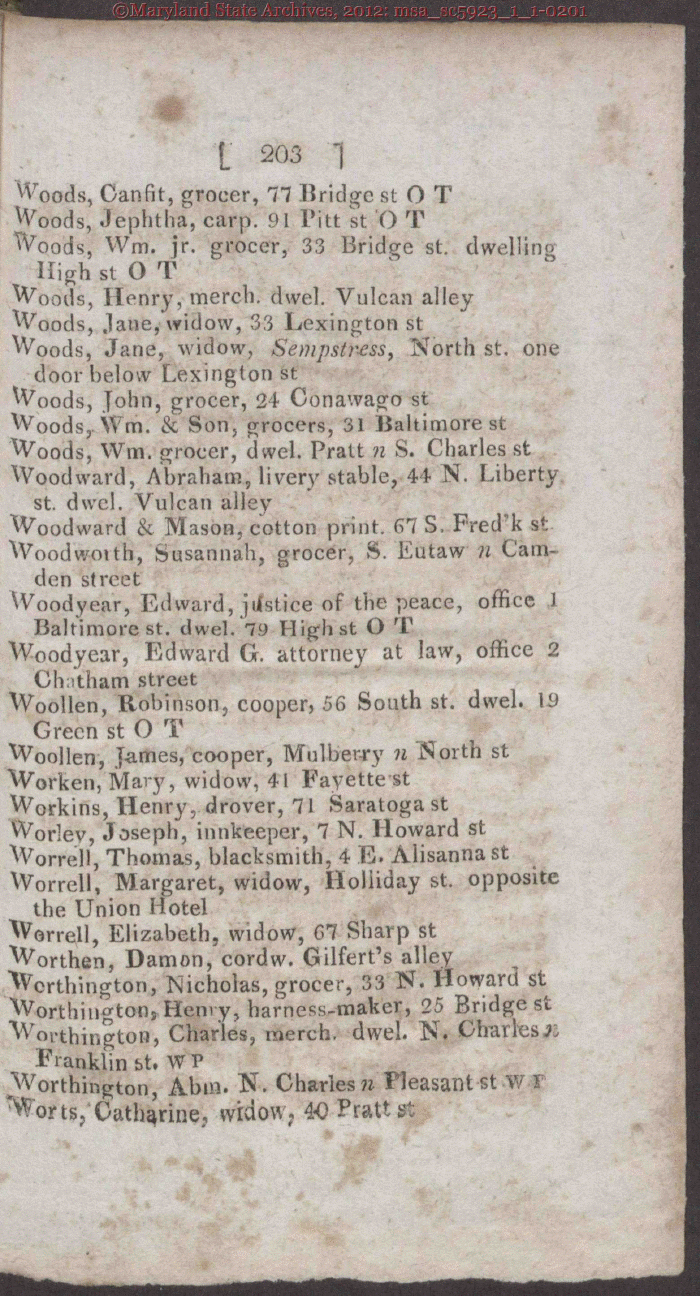 ©Maryland State Archives, 2012: msa_sc5923_1_1-0201
[ 203 ]
Woods, Canfit, grocer, 77 Bridge st O T
Woods, Jephtha, carp. 91 Pitt st O T
Woods, Wm. jr. grocer, 33 Bridge st. dwelling
High st O T
Woods, Henry, merch. dwel. Vulcan alley
Woods, Jane, widow, 33 Lexington st
Woods, Jane, widow, Sempstress, North st. one
door below Lexington st
Woods, John, grocer, 24 Conawago st
Woods, Wm. & Son, grocers, 31 Baltimore st
Woods, Wm. grocer, dwel. Pratt n S. Charles st
Woodward, Abraham, livery stable, 44 N. Liberty
st. dwel. Vulcan alley
Woodward & Mason, cotton print. 67 S. Fred'k st
Woodworth, Susannah, grocer, S. Eutaw n Cam-
den street
Woodyear, Edward, justice of the peace, office 1
Baltimore st. dwel. 79 High st O T
Woodyear, Edward G. attorney at law, office 2
Chatham street
Woollen, Robinson, cooper, 56 South st. dwel. 19
Green st O T
Woollen, James, cooper, Mulberry n North st
Worken, Mary, widow, 41 Fayette st
Workins, Henry, drover, 71 Saratoga st
Worley, Joseph, innkeeper, 7 N. Howard st
Worrell, Thomas, blacksmith, 4 E. Alisanna st
Worrell, Margaret, widow, Holliday st. opposite
the Union Hotel
Worrell, Elizabeth, widow, 67 Sharp st
Worthen, Damon, cordw. Gilfert's alley
Worthington, Nicholas, grocer, 33 N. Howard st
Worthington, Henry, harness-maker, 25 Bridge st
Worthington, Charles, merch. dwel. N. Charles n
Franklin st. W P
Worthington, Abm. N. Charles n Pleasant st W P
Worts, Catharine, widow, 40 Pratt st